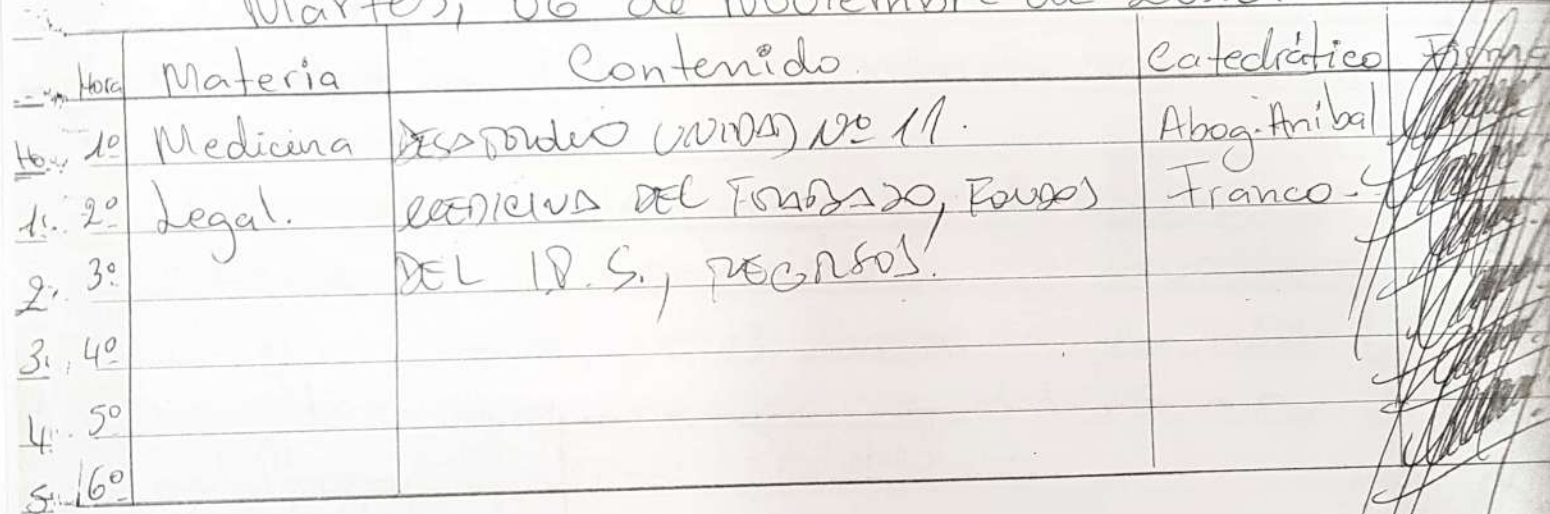 Martes, 06 de Noviembre de
Hora Materia Contenido. Catedrático Firma
1º Medicina DESARROLLO UNIDAD Nº 11. Abog. Aníbal
1: 2º Legal. MEDICINA DEL TRABAJO, FONDOS Franco.
2: 3º DEL I.P.S.,
3: 4º
4: 5º
5: 6º